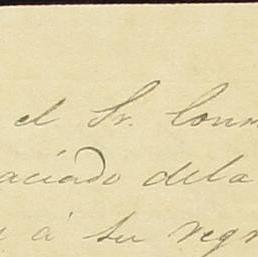 el Sr. Conm
aciado dela
á su regr